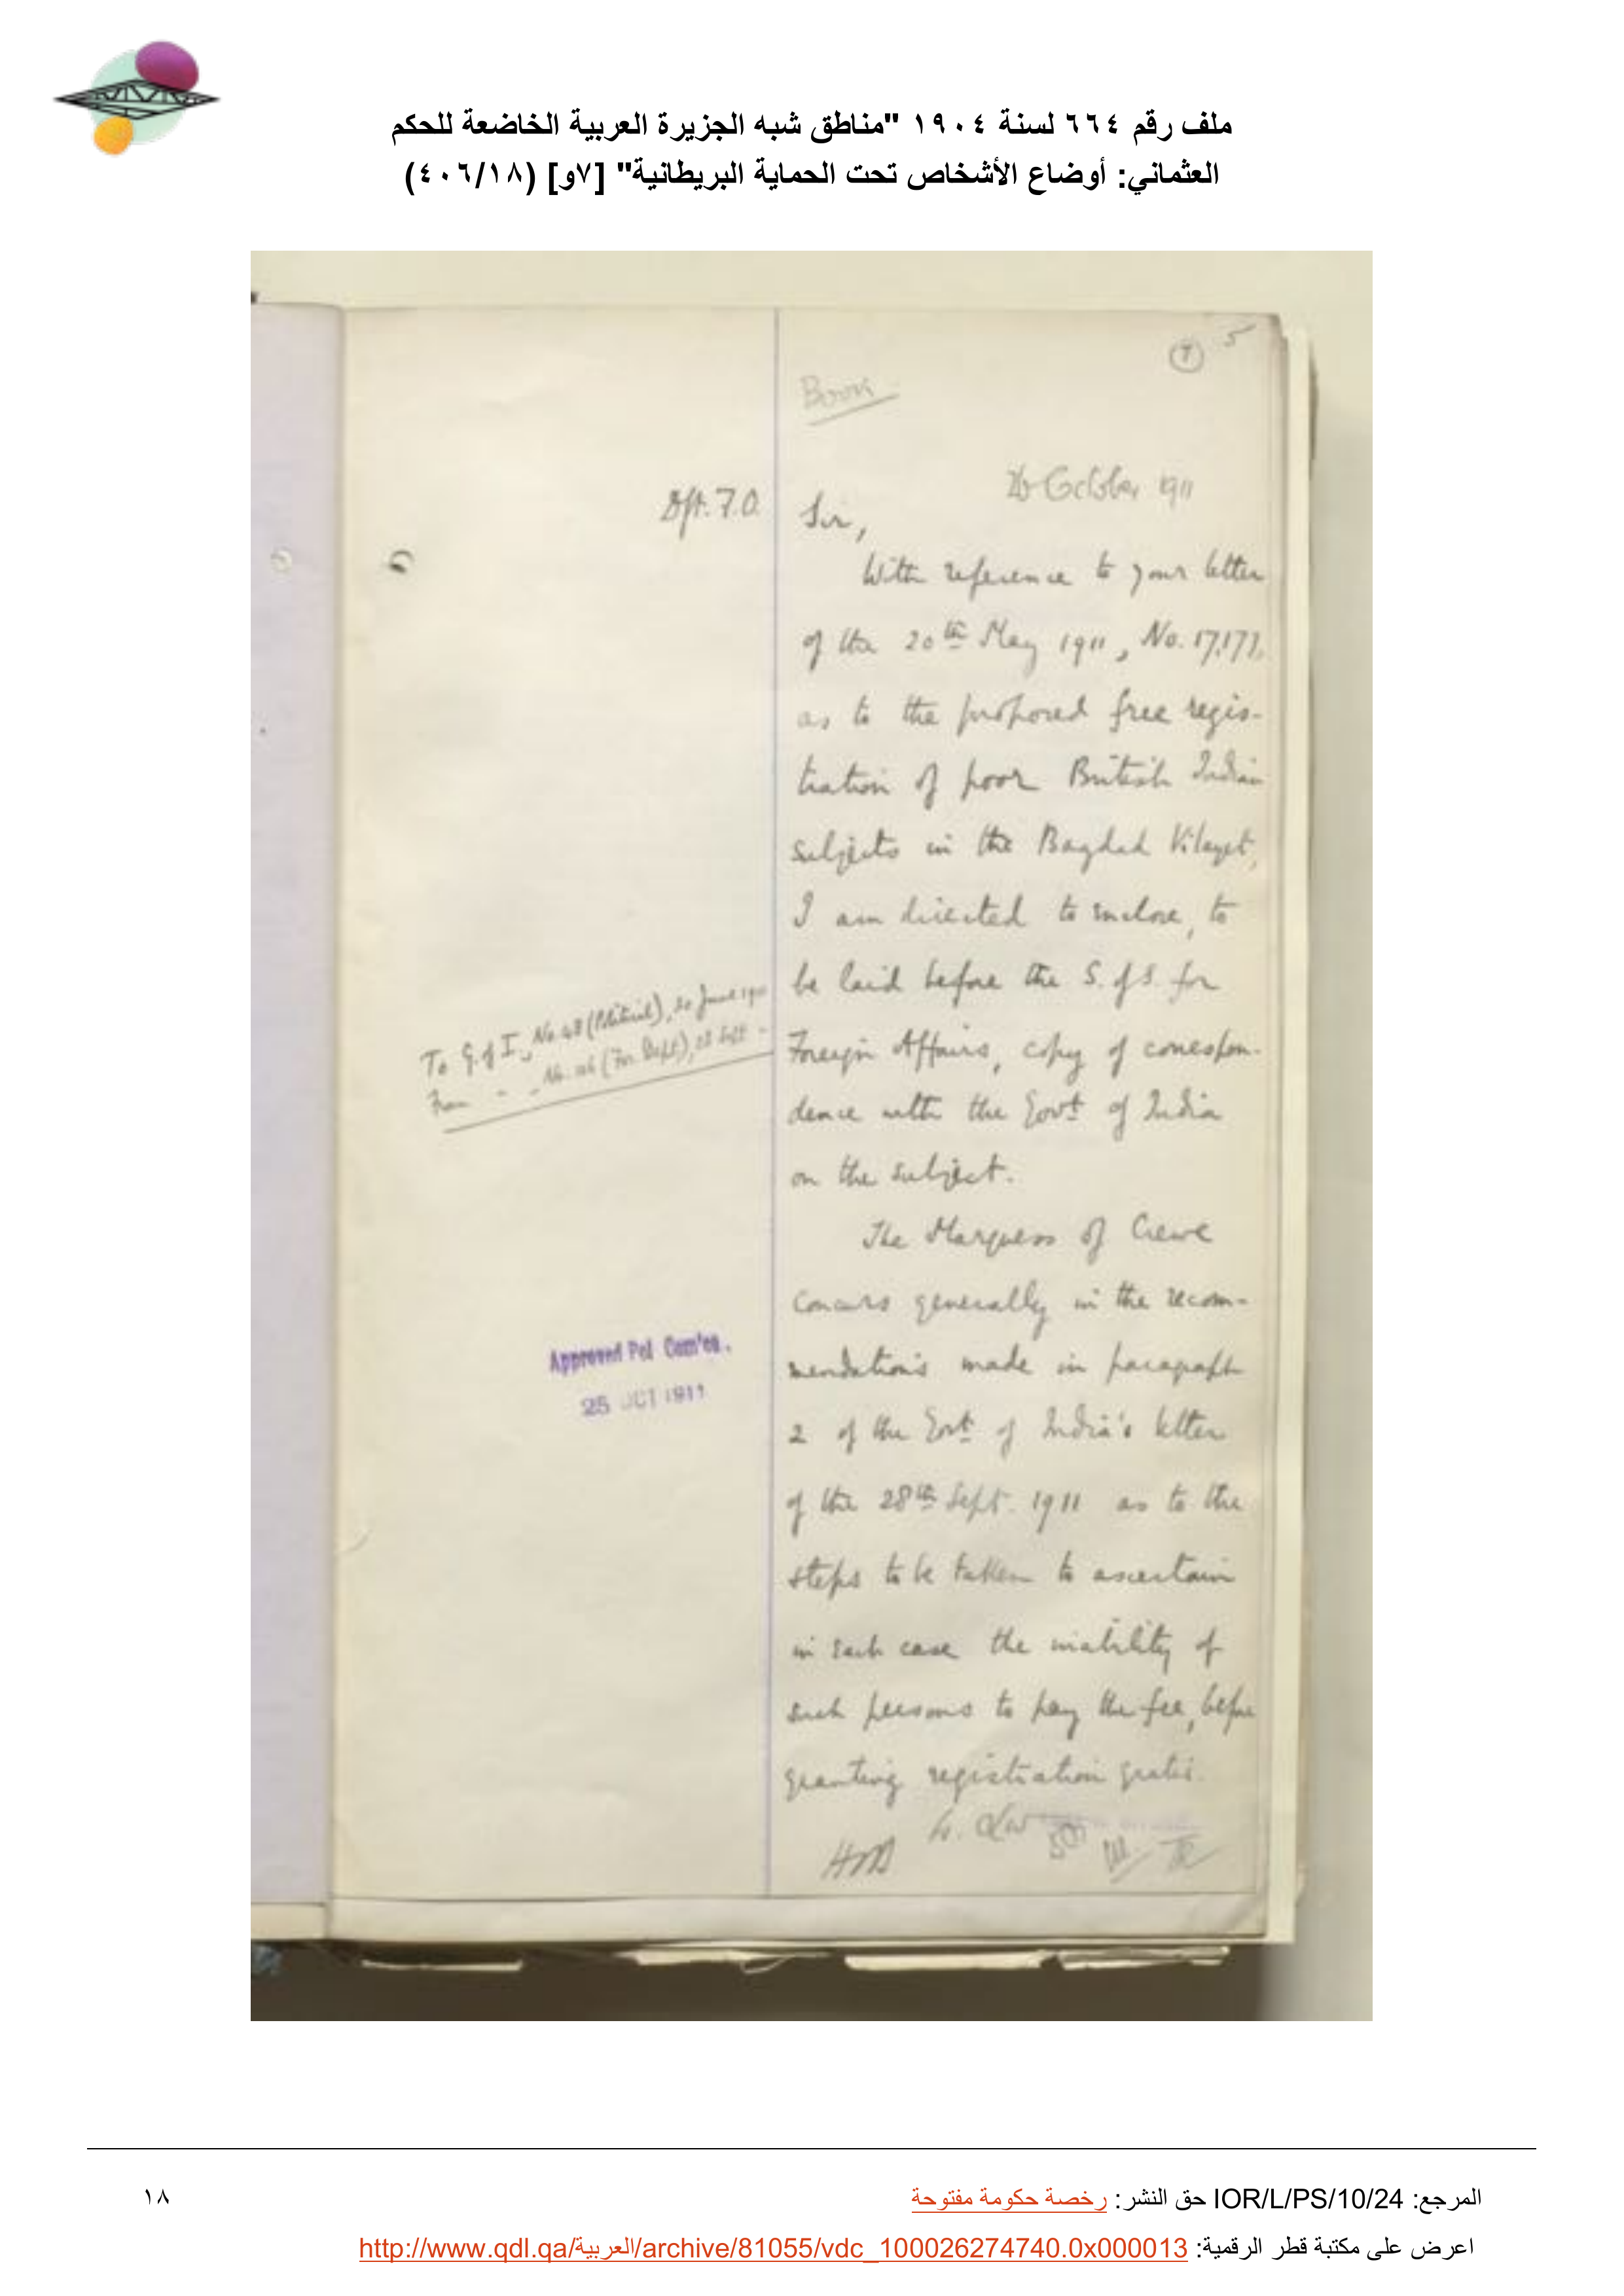 ملف رقم ٦٦٤ لسنة ١٩٠٤ "مناطق شبه الجزيرة العربية الخاضعة للحكم
العثماني: أوضاع الأشخاص تحت الحماية البريطانية" [٧و] (٤٠٦/١٨)
5
7
Book
26 October 1911
Dft. F.O.
Sir,
With reference to your letter
of the 20th May 1911, No. 17,177,
as to the proposed free regis-
tration of poor British Indian
subjects in the Bagdad Vilayet,
I am directed to enclose, to
be laid before the S. of S. for
Foreign Affairs, copy of correspon-
dence with the Govt of India
on the subject.
To G. of I., No. 48 (Political), 30 June 1911
From - - No. (For. Dept), 28 Sept -
The Marquess of Crewe
concurs generally in the recom-
mendations made in paragraph
2 of the Govt of India's letter
of the 28th Sept. 1911 as to the
steps to be taken to ascertain
in each case the inability of
such persons to pay the fee, before
granting registration gratis.
Approved Pol Com'ee.
25 OCT 1911
المرجع: IOR/L/PS/10/24 حق النشر: رخصة حكومة مفتوحة
١٨
اعرض على مكتبة قطر الرقمية: http://www.qdl.qa/العربية/archive/81055/vdc_100026274740.0x000013